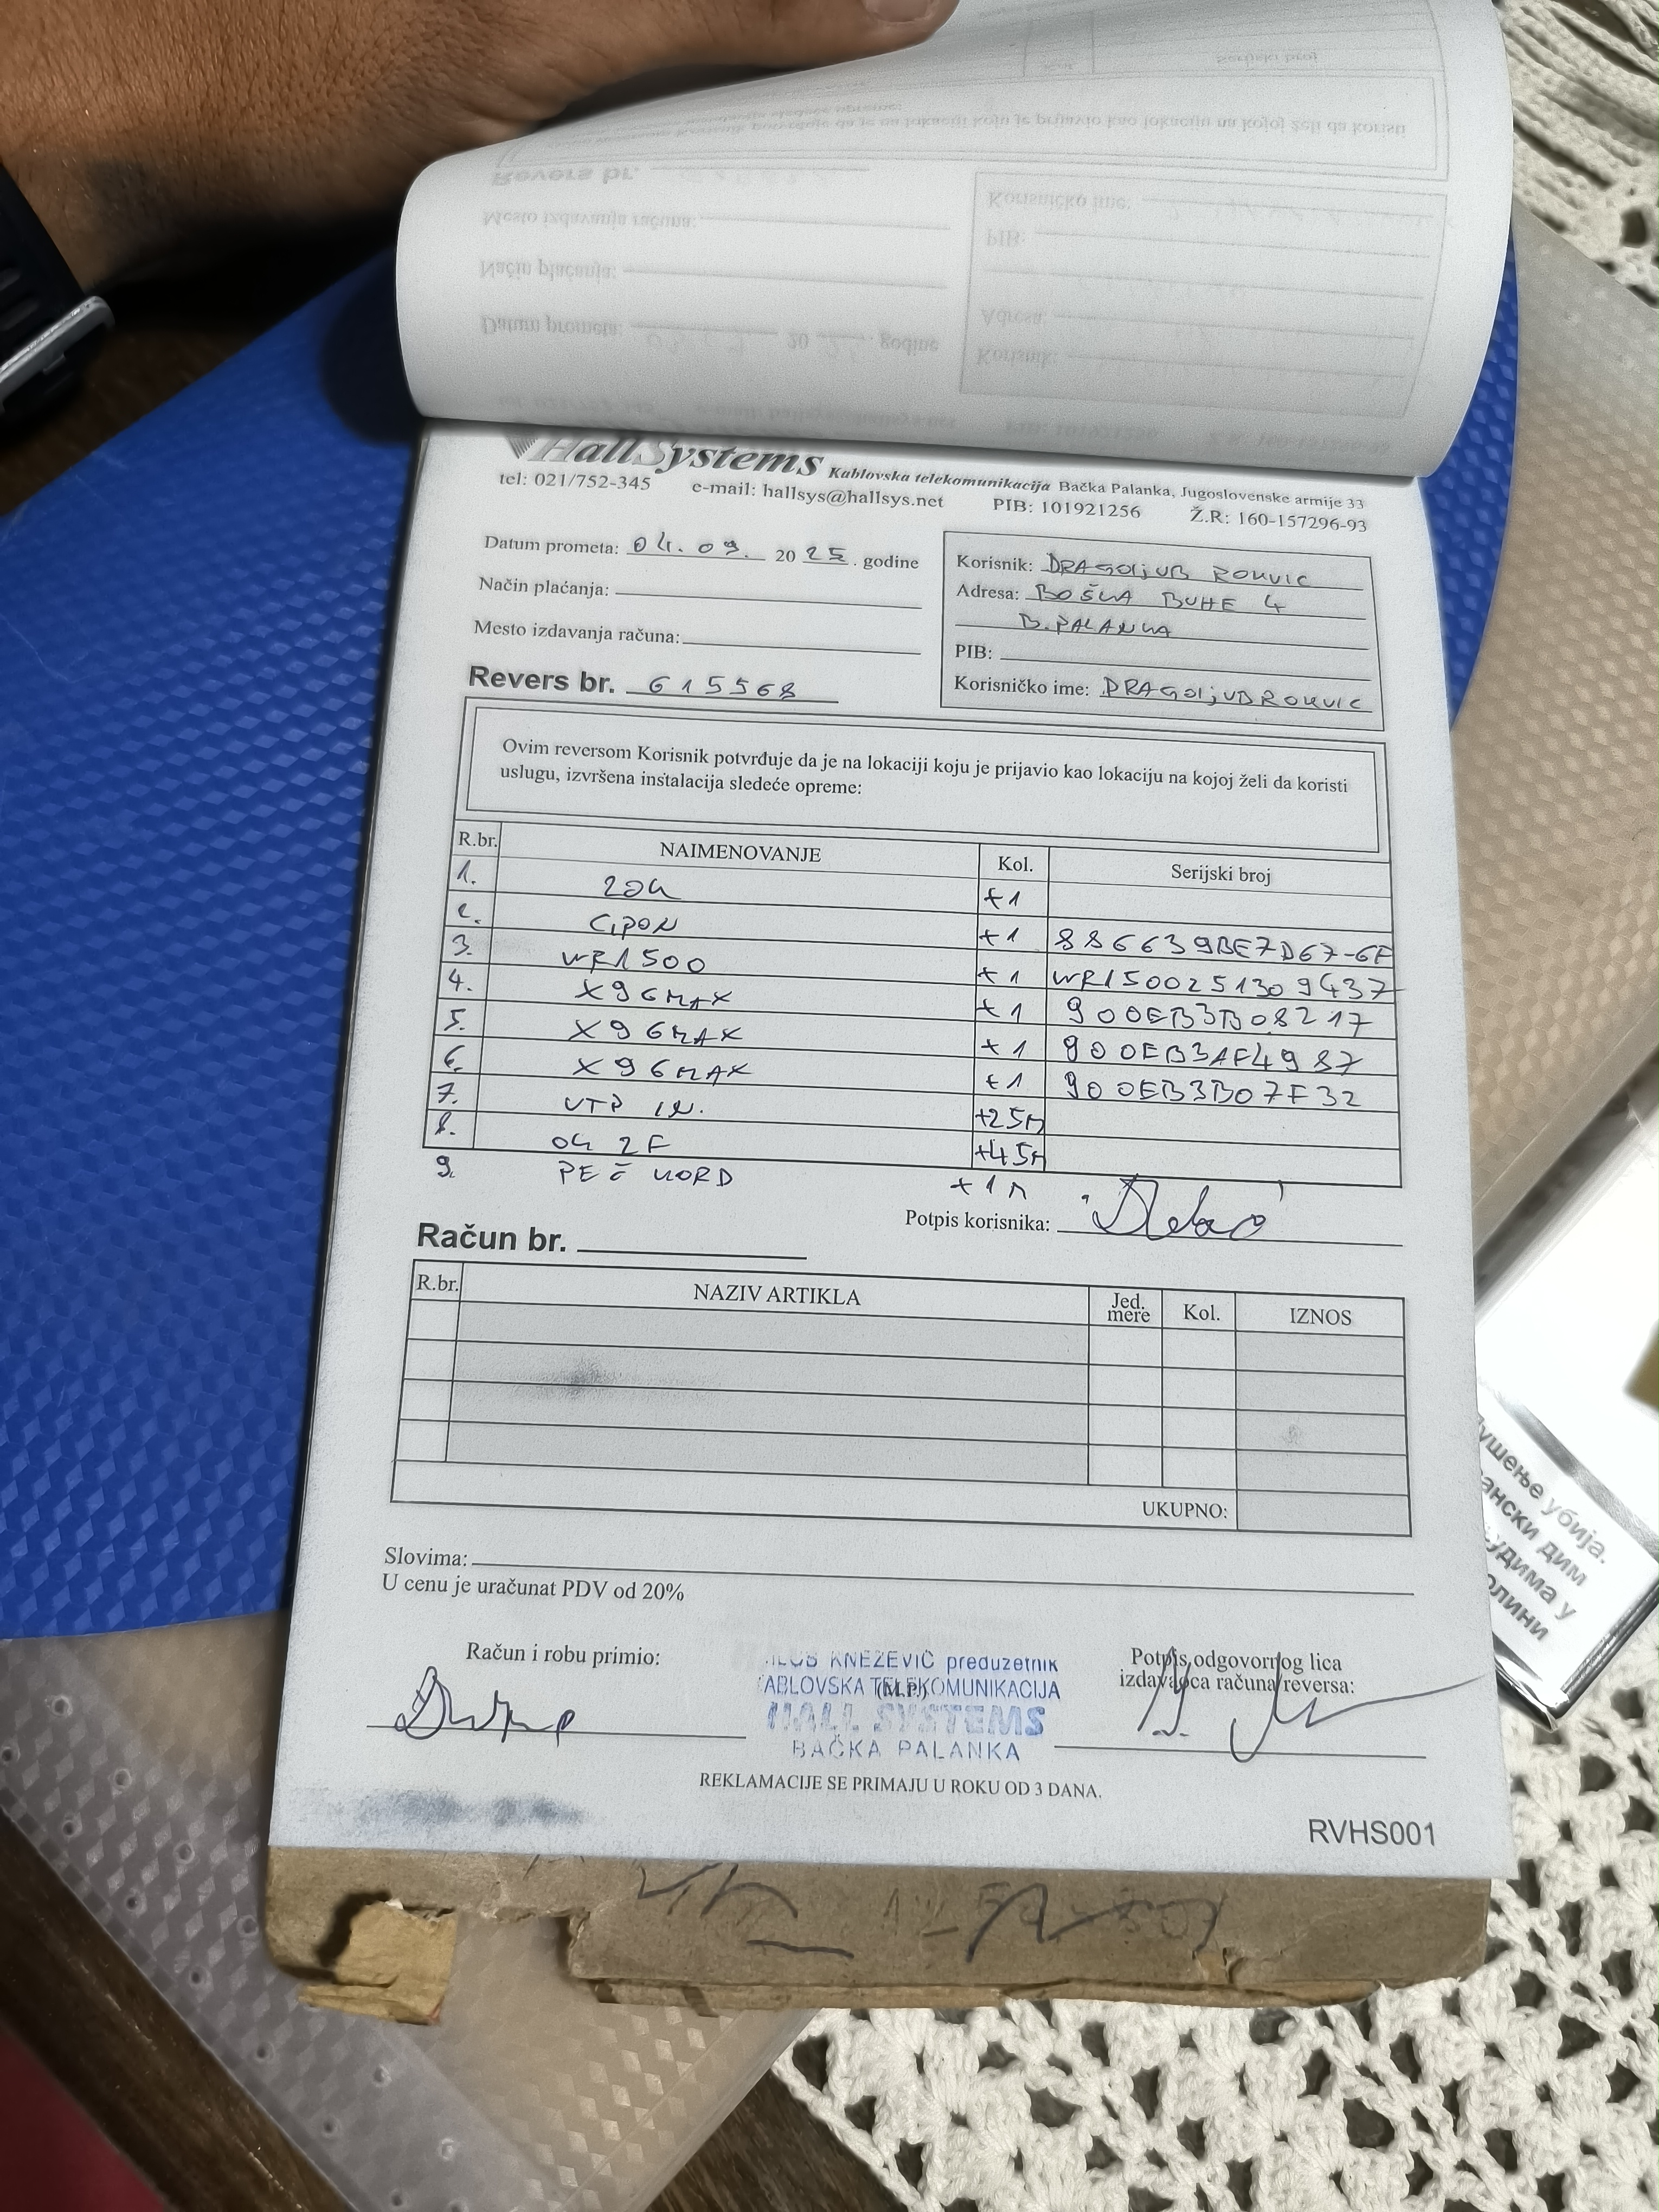 HallSystems Kablovska telekomunikacija Bačka Palanka, Jugoslovenske armije 33
tel: 021/752-345 e-mail: hallsys@hallsys.net PIB: 101921256 Ž.R: 160-157296-93
Datum prometa: 04. 09. 20 25. godine
Način plaćanja:
Mesto izdavanja računa:
Revers br. 615568
Korisnik: DRAGOljUB ROKVIC
Adresa: BOŠKA BUHE 4
B. PALANKA
PIB:
Korisničko ime: DRAGOljUBROKVIC
Ovim reversom Korisnik potvrđuje da je na lokaciji koju je prijavio kao lokaciju na kojoj želi da koristi
uslugu, izvršena instalacija sledeće opreme:
R.br. NAIMENOVANJE Kol. Serijski broj
1. ZOK +1
2. GPON +1 886639BE7D67-6F
3. WR1500 +1 WR1500251309437
4. X96MAX +1 900EB3B08217
5. X96MAX +1 900EB3AF4987
6. X96MAX +1 900EB3B07F32
7. UTP IN. +25M
8. OK 2F +45M
9. PEČ KORD +1M
Potpis korisnika:
Račun br.
R.br. NAZIV ARTIKLA Jed. mere Kol. IZNOS
UKUPNO:
Slovima:
U cenu je uračunat PDV od 20%
Račun i robu primio:
ILOŠ KNEŽEVIĆ preduzetnik
ABLOVSKA TELEKOMUNIKACIJA
(M.P.)
HALL SYSTEMS
BAČKA PALANKA
Potpis odgovornog lica
izdavaoca računa/reversa:
REKLAMACIJE SE PRIMAJU U ROKU OD 3 DANA.
RVHS001
ушење убија.
ански дим
удима у
олини